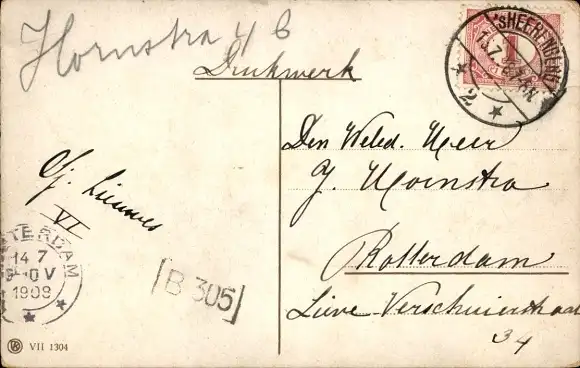 Hoornstra 4 B
Drukwerk
'SHEERENBERG
13.7. 8.7-8N
1
2
Den Weled. Heer
J. Hoornstra
Rotterdam
Lieve Verschuierstraat
34
VI
TERDAM
14 7
OV
1908
[B 305]
VII 1304